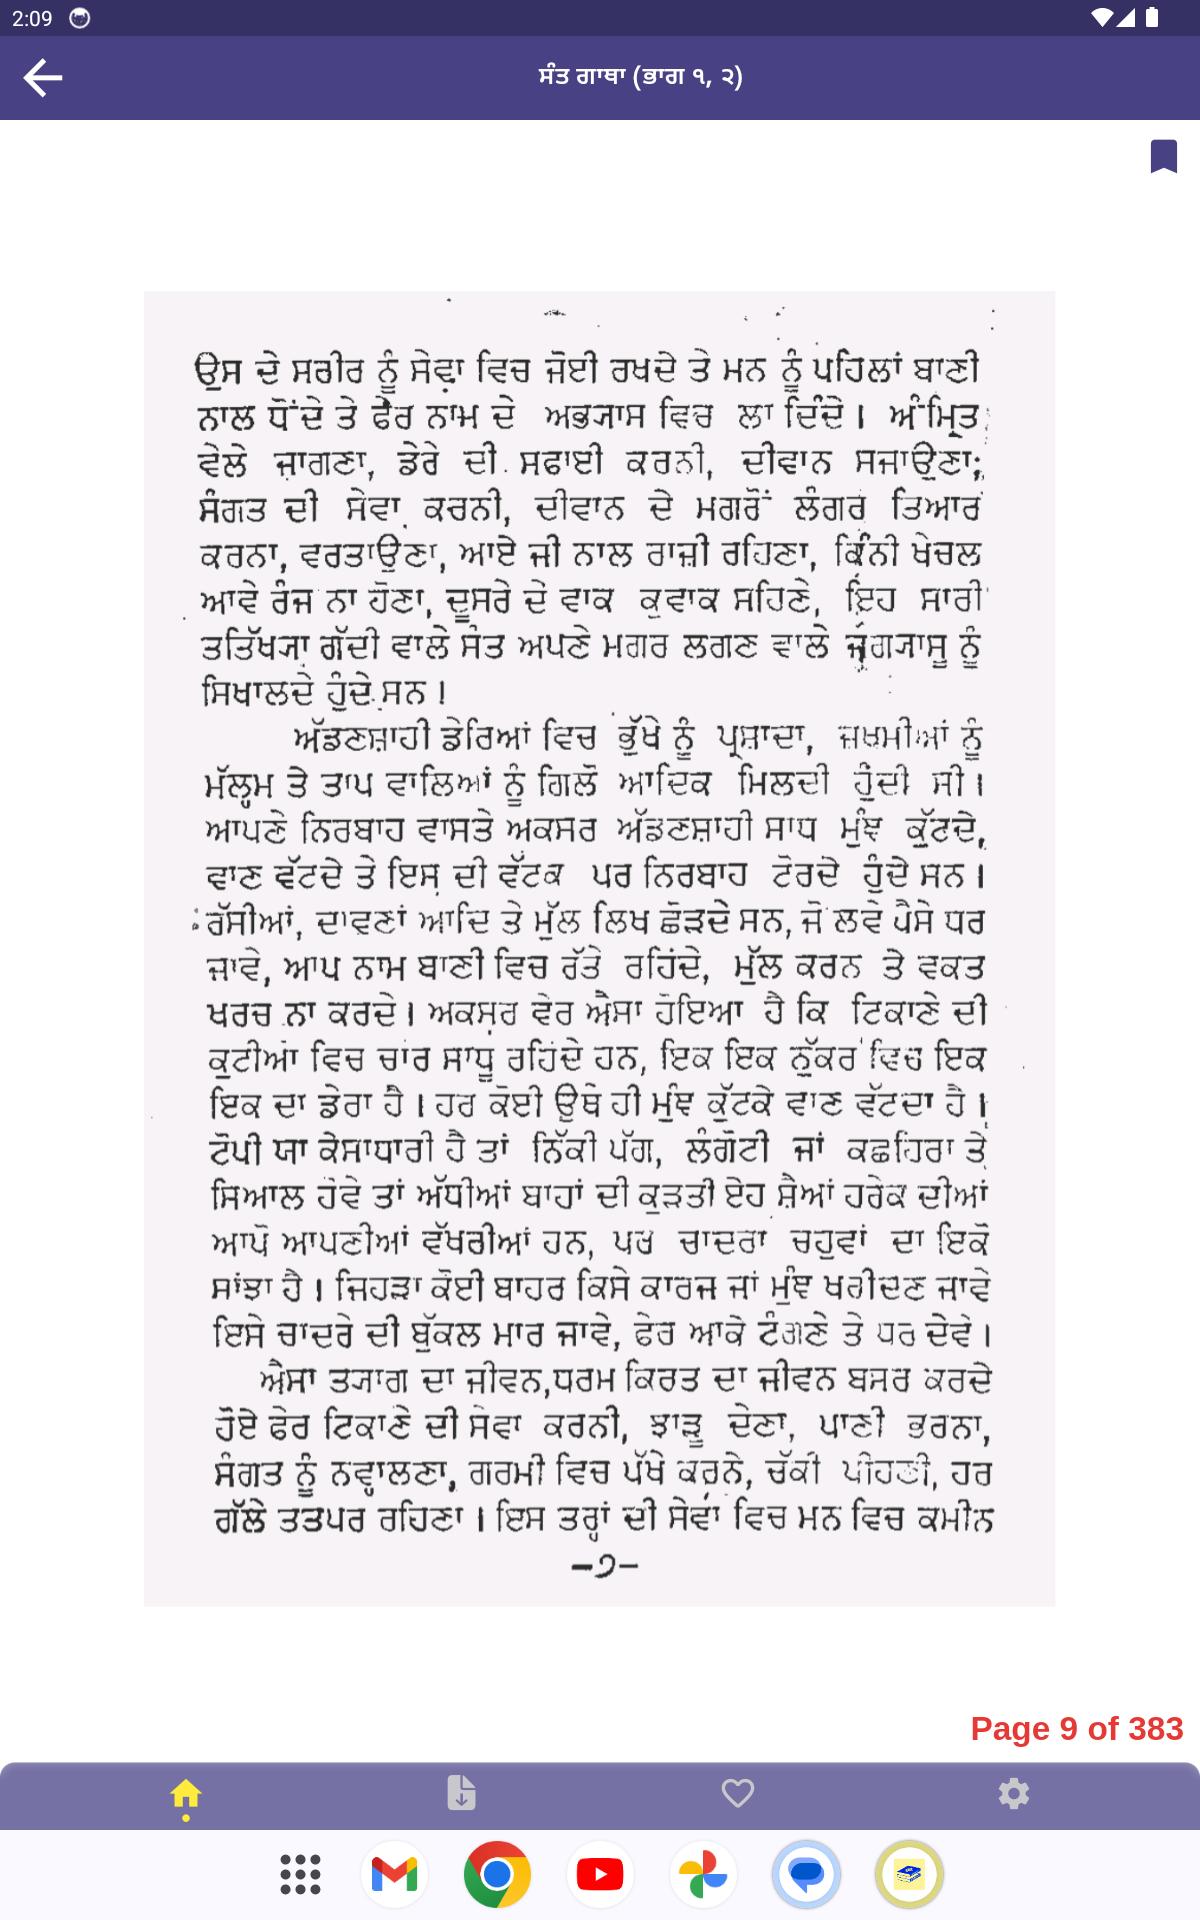 2:09
ਸੰਤ ਗਾਥਾ (ਭਾਗ ੧, ੨)
ਉਸ ਦੇ ਸਰੀਰ ਨੂੰ ਸੇਵਾ ਵਿਚ ਜੋਈ ਰਖਦੇ ਤੇ ਮਨ ਨੂੰ ਪਹਿਲਾਂ ਬਾਣੀ
ਨਾਲ ਧੋਂਦੇ ਤੇ ਫੇਰ ਨਾਮ ਦੇ ਅਭ੍ਯਾਸ ਵਿਚ ਲਾ ਦਿੰਦੇ। ਅੰਮ੍ਰਿਤ
ਵੇਲੇ ਜਾਗਣਾ, ਡੇਰੇ ਦੀ ਸਫਾਈ ਕਰਨੀ, ਦੀਵਾਨ ਸਜਾਉਣਾ;
ਸੰਗਤ ਦੀ ਸੇਵਾ ਕਰਨੀ, ਦੀਵਾਨ ਦੇ ਮਗਰੋਂ ਲੰਗਰ ਤਿਆਰ
ਕਰਨਾ, ਵਰਤਾਉਣਾ, ਆਏ ਜੀ ਨਾਲ ਰਾਜ਼ੀ ਰਹਿਣਾ, ਕਿੰਨੀ ਖੇਚਲ
ਆਵੇ ਰੰਜ ਨਾ ਹੋਣਾ, ਦੂਸਰੇ ਦੇ ਵਾਕ ਕੁਵਾਕ ਸਹਿਣੇ, ਇਹ ਸਾਰੀ
ਤਤਿੱਖ੍ਯਾ ਗੱਦੀ ਵਾਲੇ ਸੰਤ ਅਪਣੇ ਮਗਰ ਲਗਣ ਵਾਲੇ ਜੁਗ੍ਯਾਸੂ ਨੂੰ
ਸਿਖਾਲਦੇ ਹੁੰਦੇ ਸਨ।
ਅੱਡਣਸ਼ਾਹੀ ਡੇਰਿਆਂ ਵਿਚ ਭੁੱਖੇ ਨੂੰ ਪ੍ਰਸ਼ਾਦਾ, ਜ਼ਖਮੀਆਂ ਨੂੰ
ਮੱਲ੍ਹਮ ਤੇ ਤਾਪ ਵਾਲਿਆਂ ਨੂੰ ਗਿਲੋ ਆਦਿਕ ਮਿਲਦੀ ਹੁੰਦੀ ਸੀ।
ਆਪਣੇ ਨਿਰਬਾਹ ਵਾਸਤੇ ਅਕਸਰ ਅੱਡਣਸ਼ਾਹੀ ਸਾਧ ਮੁੰਞ ਕੁੱਟਦੇ,
ਵਾਣ ਵੱਟਦੇ ਤੇ ਇਸ ਦੀ ਵੱਟਕ ਪਰ ਨਿਰਬਾਹ ਟੋਰਦੇ ਹੁੰਦੇ ਸਨ।
ਰੱਸੀਆਂ, ਦਾਵਣਾਂ ਆਦਿ ਤੇ ਮੁੱਲ ਲਿਖ ਛੋੜਦੇ ਸਨ, ਜੋ ਲਵੇ ਪੈਸੇ ਧਰ
ਜਾਵੇ, ਆਪ ਨਾਮ ਬਾਣੀ ਵਿਚ ਰੱਤੇ ਰਹਿੰਦੇ, ਮੁੱਲ ਕਰਨ ਤੇ ਵਕਤ
ਖਰਚ ਨਾ ਕਰਦੇ। ਅਕਸਰ ਵੇਰ ਐਸਾ ਹੋਇਆ ਹੈ ਕਿ ਟਿਕਾਣੇ ਦੀ
ਕੁਟੀਆ ਵਿਚ ਚਾਰ ਸਾਧੂ ਰਹਿੰਦੇ ਹਨ, ਇਕ ਇਕ ਨੁੱਕਰ ਵਿਚ ਇਕ
ਇਕ ਦਾ ਡੇਰਾ ਹੈ। ਹਰ ਕੋਈ ਉਥੇ ਹੀ ਮੁੰਞ ਕੁੱਟਕੇ ਵਾਣ ਵੱਟਦਾ ਹੈ।
ਟੋਪੀ ਯਾ ਕੇਸਾਧਾਰੀ ਹੈ ਤਾਂ ਨਿੱਕੀ ਪੱਗ, ਲੰਗੋਟੀ ਜਾਂ ਕਛਹਿਰਾ ਤੇ
ਸਿਆਲ ਹੋਵੇ ਤਾਂ ਅੱਧੀਆਂ ਬਾਹਾਂ ਦੀ ਕੁੜਤੀ ਏਹ ਸ਼ੈਆਂ ਹਰੇਕ ਦੀਆਂ
ਆਪੋ ਆਪਣੀਆਂ ਵੱਖਰੀਆਂ ਹਨ, ਪਰ ਚਾਦਰਾ ਚਹੁਵਾਂ ਦਾ ਇਕੋ
ਸਾਂਝਾ ਹੈ। ਜਿਹੜਾ ਕੋਈ ਬਾਹਰ ਕਿਸੇ ਕਾਰਜ ਜਾਂ ਮੁੰਞ ਖਰੀਦਣ ਜਾਵੇ
ਇਸੇ ਚਾਦਰੇ ਦੀ ਬੁੱਕਲ ਮਾਰ ਜਾਵੇ, ਫੇਰ ਆਕੇ ਟੰਗਣੇ ਤੇ ਧਰ ਦੇਵੇ।
ਐਸਾ ਤ੍ਯਾਗ ਦਾ ਜੀਵਨ,ਧਰਮ ਕਿਰਤ ਦਾ ਜੀਵਨ ਬਸਰ ਕਰਦੇ
ਹੋਏ ਫੇਰ ਟਿਕਾਣੇ ਦੀ ਸੇਵਾ ਕਰਨੀ, ਝਾੜੂ ਦੇਣਾ, ਪਾਣੀ ਭਰਨਾ,
ਸੰਗਤ ਨੂੰ ਨਵ੍ਹਾਲਣਾ, ਗਰਮੀ ਵਿਚ ਪੱਖੇ ਕਰਨੇ, ਚੱਕੀ ਪੀਹਣੀ, ਹਰ
ਗੱਲੇ ਤਤਪਰ ਰਹਿਣਾ। ਇਸ ਤਰ੍ਹਾਂ ਦੀ ਸੇਵਾ ਵਿਚ ਮਨ ਵਿਚ ਕਮੀਨ
–੭–
Page 9 of 383